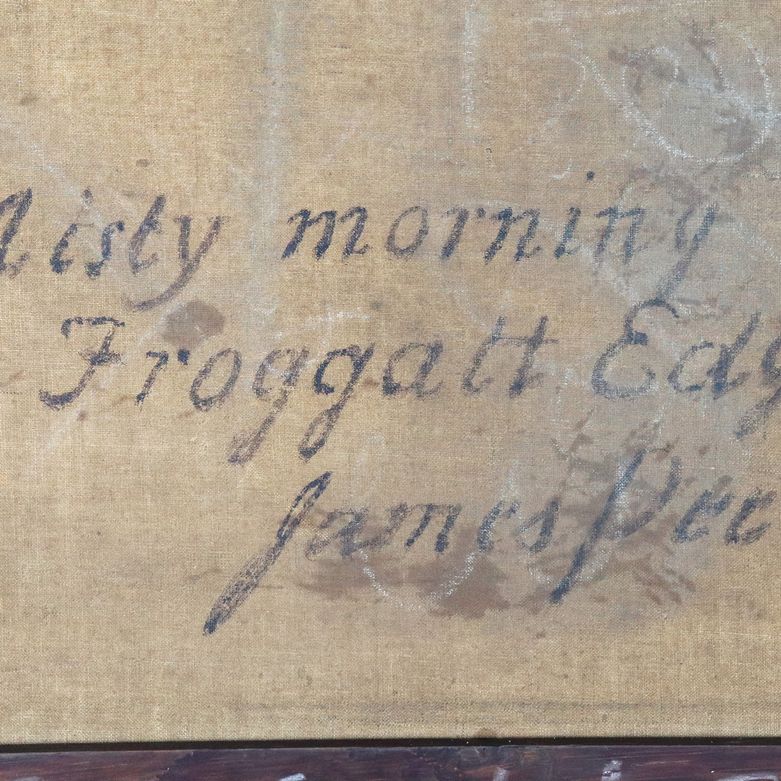 Misty morning
Froggatt Edg
James Pee